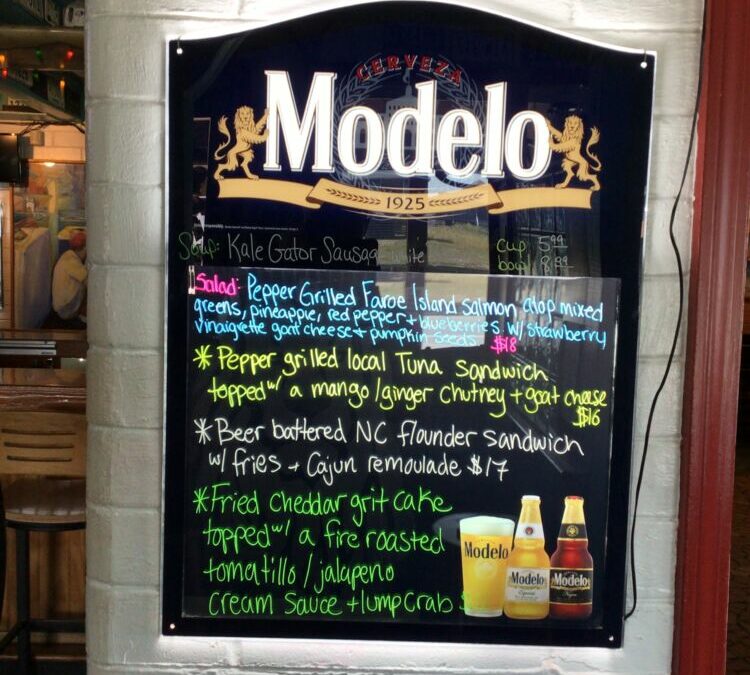 CERVEZA
Modelo
1925
Soup: Kale Gator Sausage white
cup 5.99
bowl 8.99
Salad: Pepper Grilled Faroe Island Salmon atop mixed
greens, pineapple, red pepper + blueberries w/ strawberry
vinaigrette goat cheese + pumpkin seeds $18
* Pepper grilled local Tuna Sandwich
topped w/ a mango/ginger chutney + goat cheese
$16
* Beer battered NC flounder sandwich
w/ fries + Cajun remoulade $17
* Fried cheddar grit cake
topped w/ a fire roasted
tomatillo/jalapeno
cream sauce + lump crab $
Modelo
Modelo
Especial
Modelo
Negra